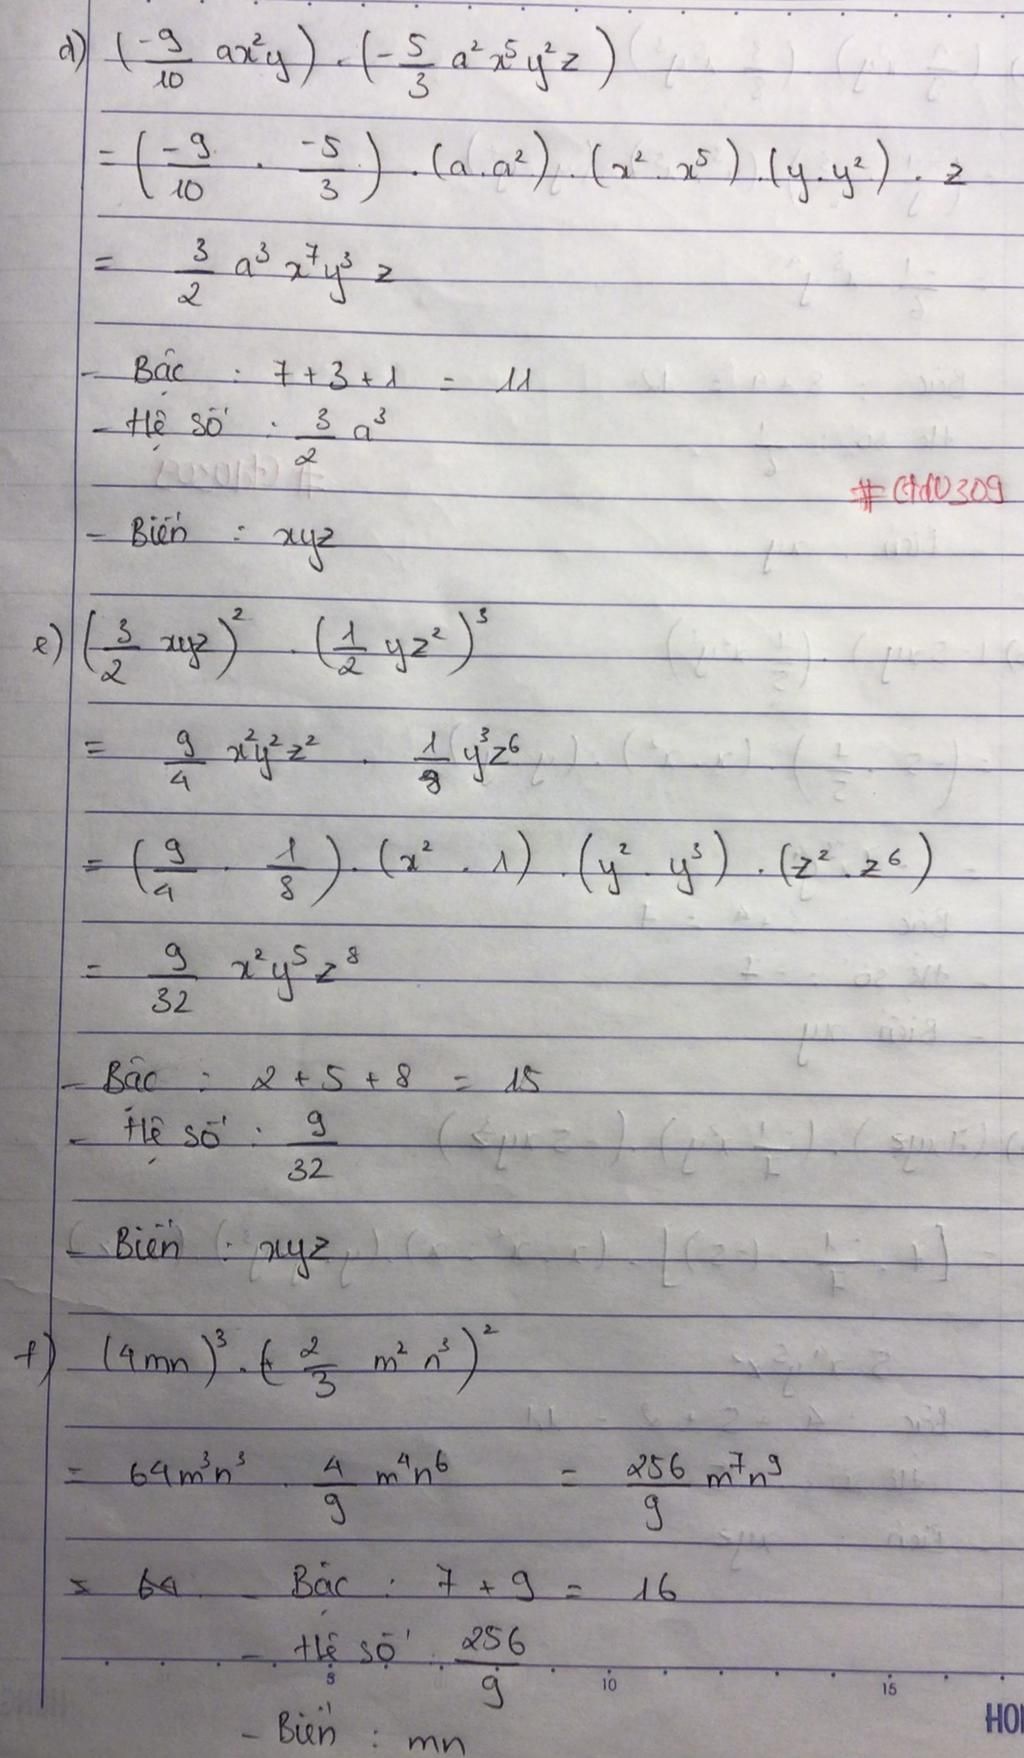 d) (-9/10 ax²y) . (-5/3 a²x⁵y²z)
= (-9/10 . -5/3) . (a.a²) . (x².x⁵) . (y.y²) . z
= 3/2 a³x⁷y³z
- Bậc : 7+3+1 = 11
- Hệ số : 3/2 a³
- Biến : xyz
e) (3/2 xyz)² . (1/2 yz²)³
= 9/4 x²y²z² . 1/8 y³z⁶
= (9/4 . 1/8) . (x² . 1) . (y² . y³) . (z² . z⁶)
= 9/32 x²y⁵z⁸
- Bậc : 2+5+8 = 15
- Hệ số : 9/32
- Biến : xyz
f) (4mn)³ . (- 2/3 m²n³)²
= 64m³n³ . 4/9 m⁴n⁶ = 256/9 m⁷n⁹
= 64 - Bậc : 7+9 = 16
- Hệ số : 256/9
10 15
HO
- Biến : mn